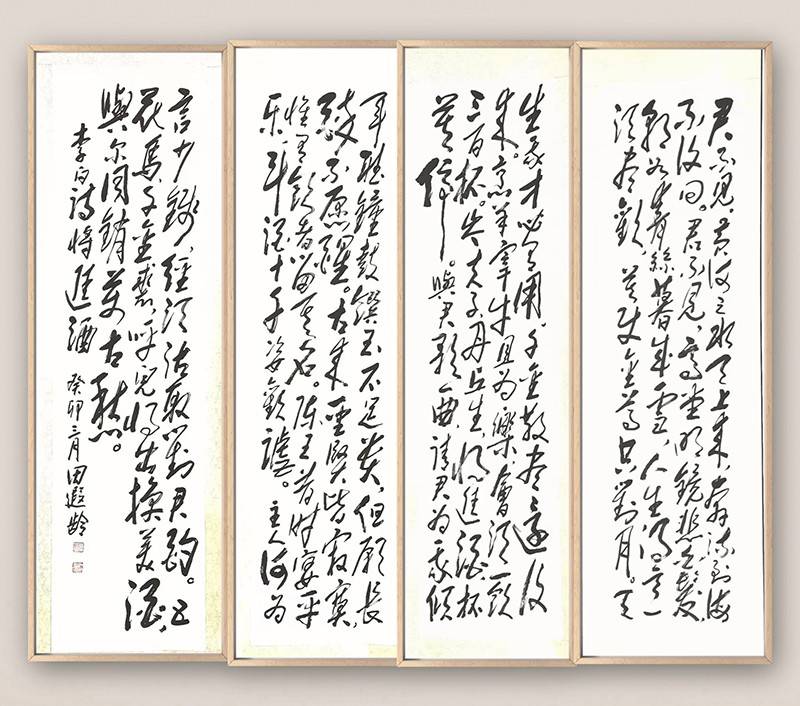 君不見,黄河之水天上来,奔流到海
不復回。君不見,高堂明鏡悲白髮,
朝如青絲暮成雪,人生得意
须尽歡,莫使金尊空對月。天
生我才必有用,千金散尽還復
来。烹羊宰牛且为樂,會须一飲
三百杯。岑夫子,丹丘生,将進酒,杯
莫停。與君歌一曲,请君为我倾
耳聽。鐘鼓饌玉不足贵,但願長
醉不愿醒。古来聖贤皆寂寞,
惟有飲者留其名。陈王昔时宴平
乐,斗酒十千恣歡謔。主人何为
言少錢,径须沽取對君酌。五
花馬,千金裘,呼兒将出换美酒,
與尔同销萬古愁。
李白詩将進酒 癸卯三月田遐齡